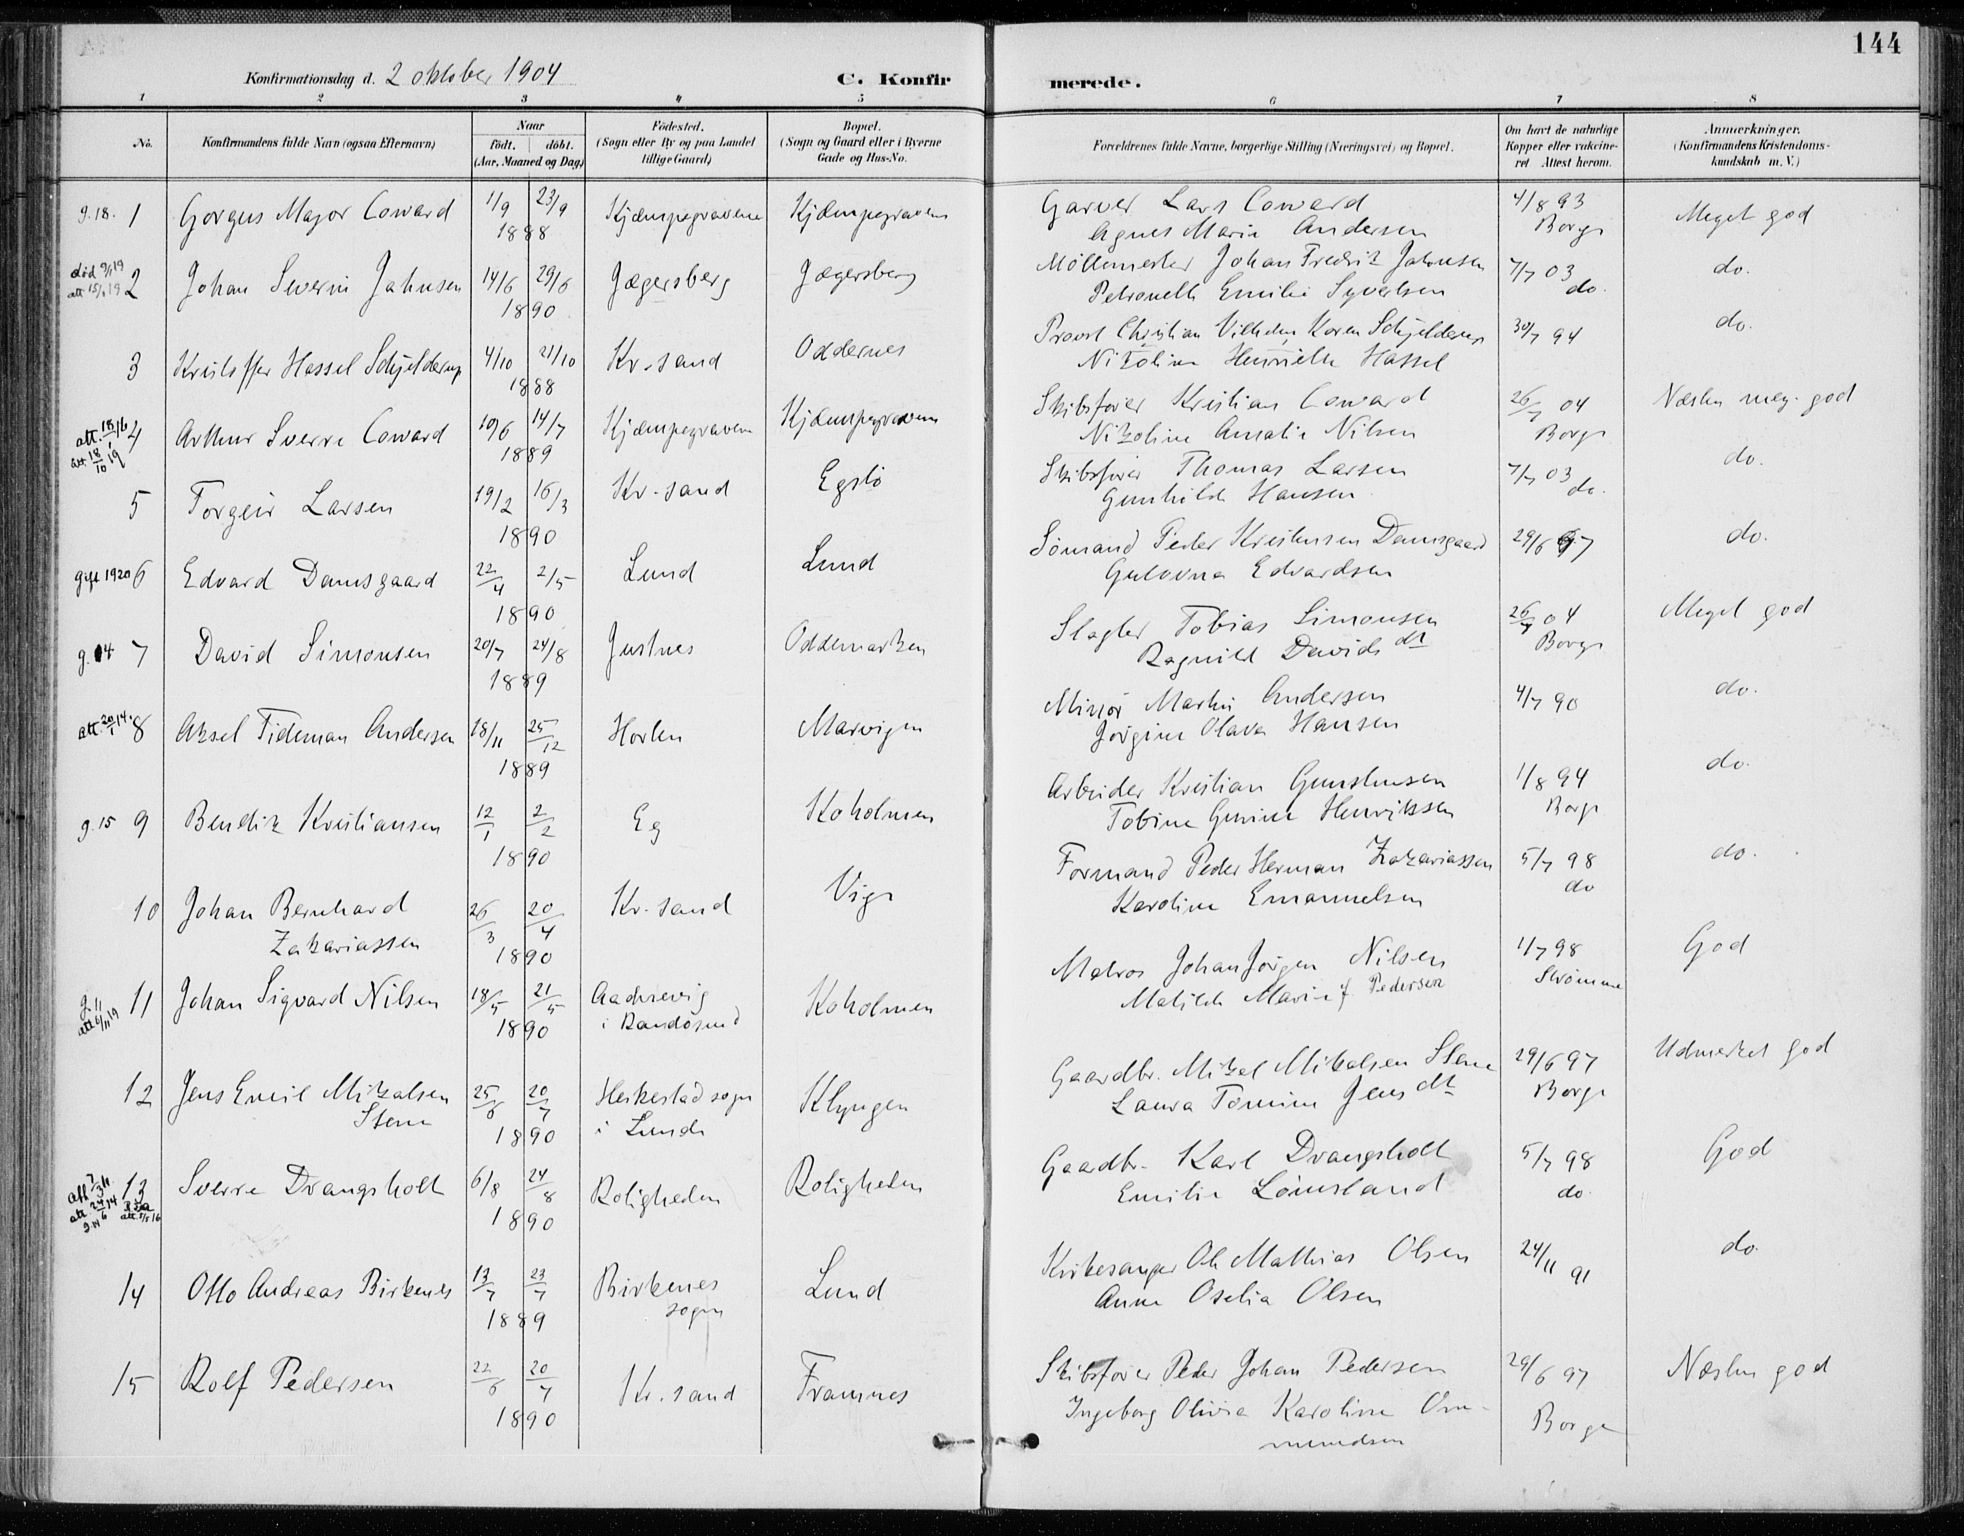 144
Konfirmationsdag d. 2 oktober 1904
C. Konfirmerede.
1 2 3 4 5 6 7 8
No.
Konfirmandens fulde Navn (ogsaa Efternavn)
Naar
födt. döbt.
(Aar, Maaned og Dag)
Födested.
(Sogn eller By og paa Landet
tillige Gaard)
Bopæl.
(Sogn og Gaard eller i Byerne
Gade og Hus-No.
Forældrenes fulde Navne, borgerlige Stilling (Næringsvei) og Bopæl.
Om havt de naturlige
Kopper eller vakcine-
ret Attest herom.
Anmærkninger.
(Konfirmandens Kristendoms-
kundskab m. V.)
g. 18. 1 Gorgus Major Coward 11/9 23/9 Kjæmpegravene Kjæmpegraven Garver Lars Coward 4/8 93 Meget god
1888 Agnes Marie Andersen Borge
död 9/1 19
att 15/1 19 2 Johan Severin Jahnsen 14/6 29/6 Jægersberg Jægersberg Möllemester Johan Fredrik Jahnsen 7/7 03 do.
1890 Petronelle Emilie Syvertsen do.
3 Kristoffer Hassel Schjelderup 4/10 21/10 Kr.sand Oddernes Provst Christian Vilhelm Koren Schjelderup 30/7 94 do.
1888 Nikoline Henriette Hassel
att. 18/1 16 4 Arthur Sverre Coward 10/6 14/7 Kjæmpegraven Kjæmpegraven Skibsförer Kristian Coward 26/7 04 Næsten meg. god
att 18/10 19 1889 Nikoline Amalie Nilsen Borge
5 Torgeir Larsen 19/2 16/3 Kr.sand Egslö Skibsförer Thomas Larsen 7/7 03 do.
1890 Gunhilde Hansen do.
gift 1920 6 Edvard Damsgaard 22/4 2/5 Lund Lund Sömand Peder Kristensen Damsgaard 29/6 97 do.
1890 Gulovna Edvardsen
g. 14 7 David Simonsen 20/7 24/8 Justnes Oddemarken Slagter Tobias Simonsen 26/7 04 Meget god
1889 Ragnild Davids dt Borge
att. 20/1 14. 8 Aksel Tideman Andersen 18/11 25/12 Horten Marvigen Minör Martin Andersen 4/7 90 do.
1889 Jörgine Olava Hansen
g. 15 9 Bendik Kristiansen 12/1 2/2 Eg Koholmen Arbeider Kristian Gunstensen 1/8 94 do.
1890 Tobine Gurine Henriksen Borge
10 Johan Bernhard 26/3 20/4 Kr.sand Vige Formand Peder Herman Zakariassen 5/7 98 do.
Zakariassen 1890 Karoline Emanuelsen do
g. 11
att 6/11 19 11 Johan Sigvard Nilsen 18/5 21/5 Aadnevig Koholmen Matros Johan Jörgen Nilsen 1/7 98 God
i Randösund 1890 Matilde Marie f. Pedersen Strömme
12 Jens Emil Mikalsen 25/6 20/7 Heskestad sogn Klyngen Gaardbr. Mikal Mikalsen Stene 29/6 97 Udmerket god
Stene 1890 i Lunde Laura Tomine Jens dt Borge
13 Sverre Drangsholt 6/8 24/8 Roligheden Roligheden Gaardbr. Karl Drangsholt 5/7 98 God
att. 24/6 14 1890 Emilie Lömsland do.
14 Otto Andreas Birkenes 13/7 23/7 Birkenes Lund Kirkesanger Ole Mathias Olsen 24/11 91 do.
1889 sogn Anne Oselia Olsen
15 Rolf Pedersen 22/6 20/7 Kr.sand Framnes Skibsförer Peder Johan Pedersen 29/6 97 Næsten god
1890 Ingeborg Olivia Karoline Om-
mundsen Borge